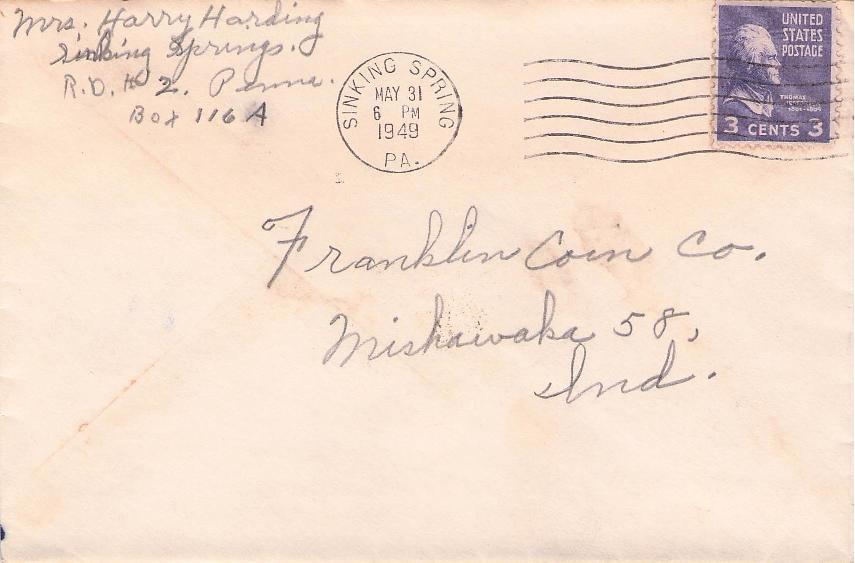 Mrs. Harry Harding
Sinking Springs.
R.D. # 2. Penna.
Box 116 A
SINKING SPRING
MAY 31
6 PM
1949
PA.
UNITED
STATES
POSTAGE
THOMAS
JEFFERSON
3 CENTS 3
Franklin Coin Co.
Mishawaka 58,
Ind.